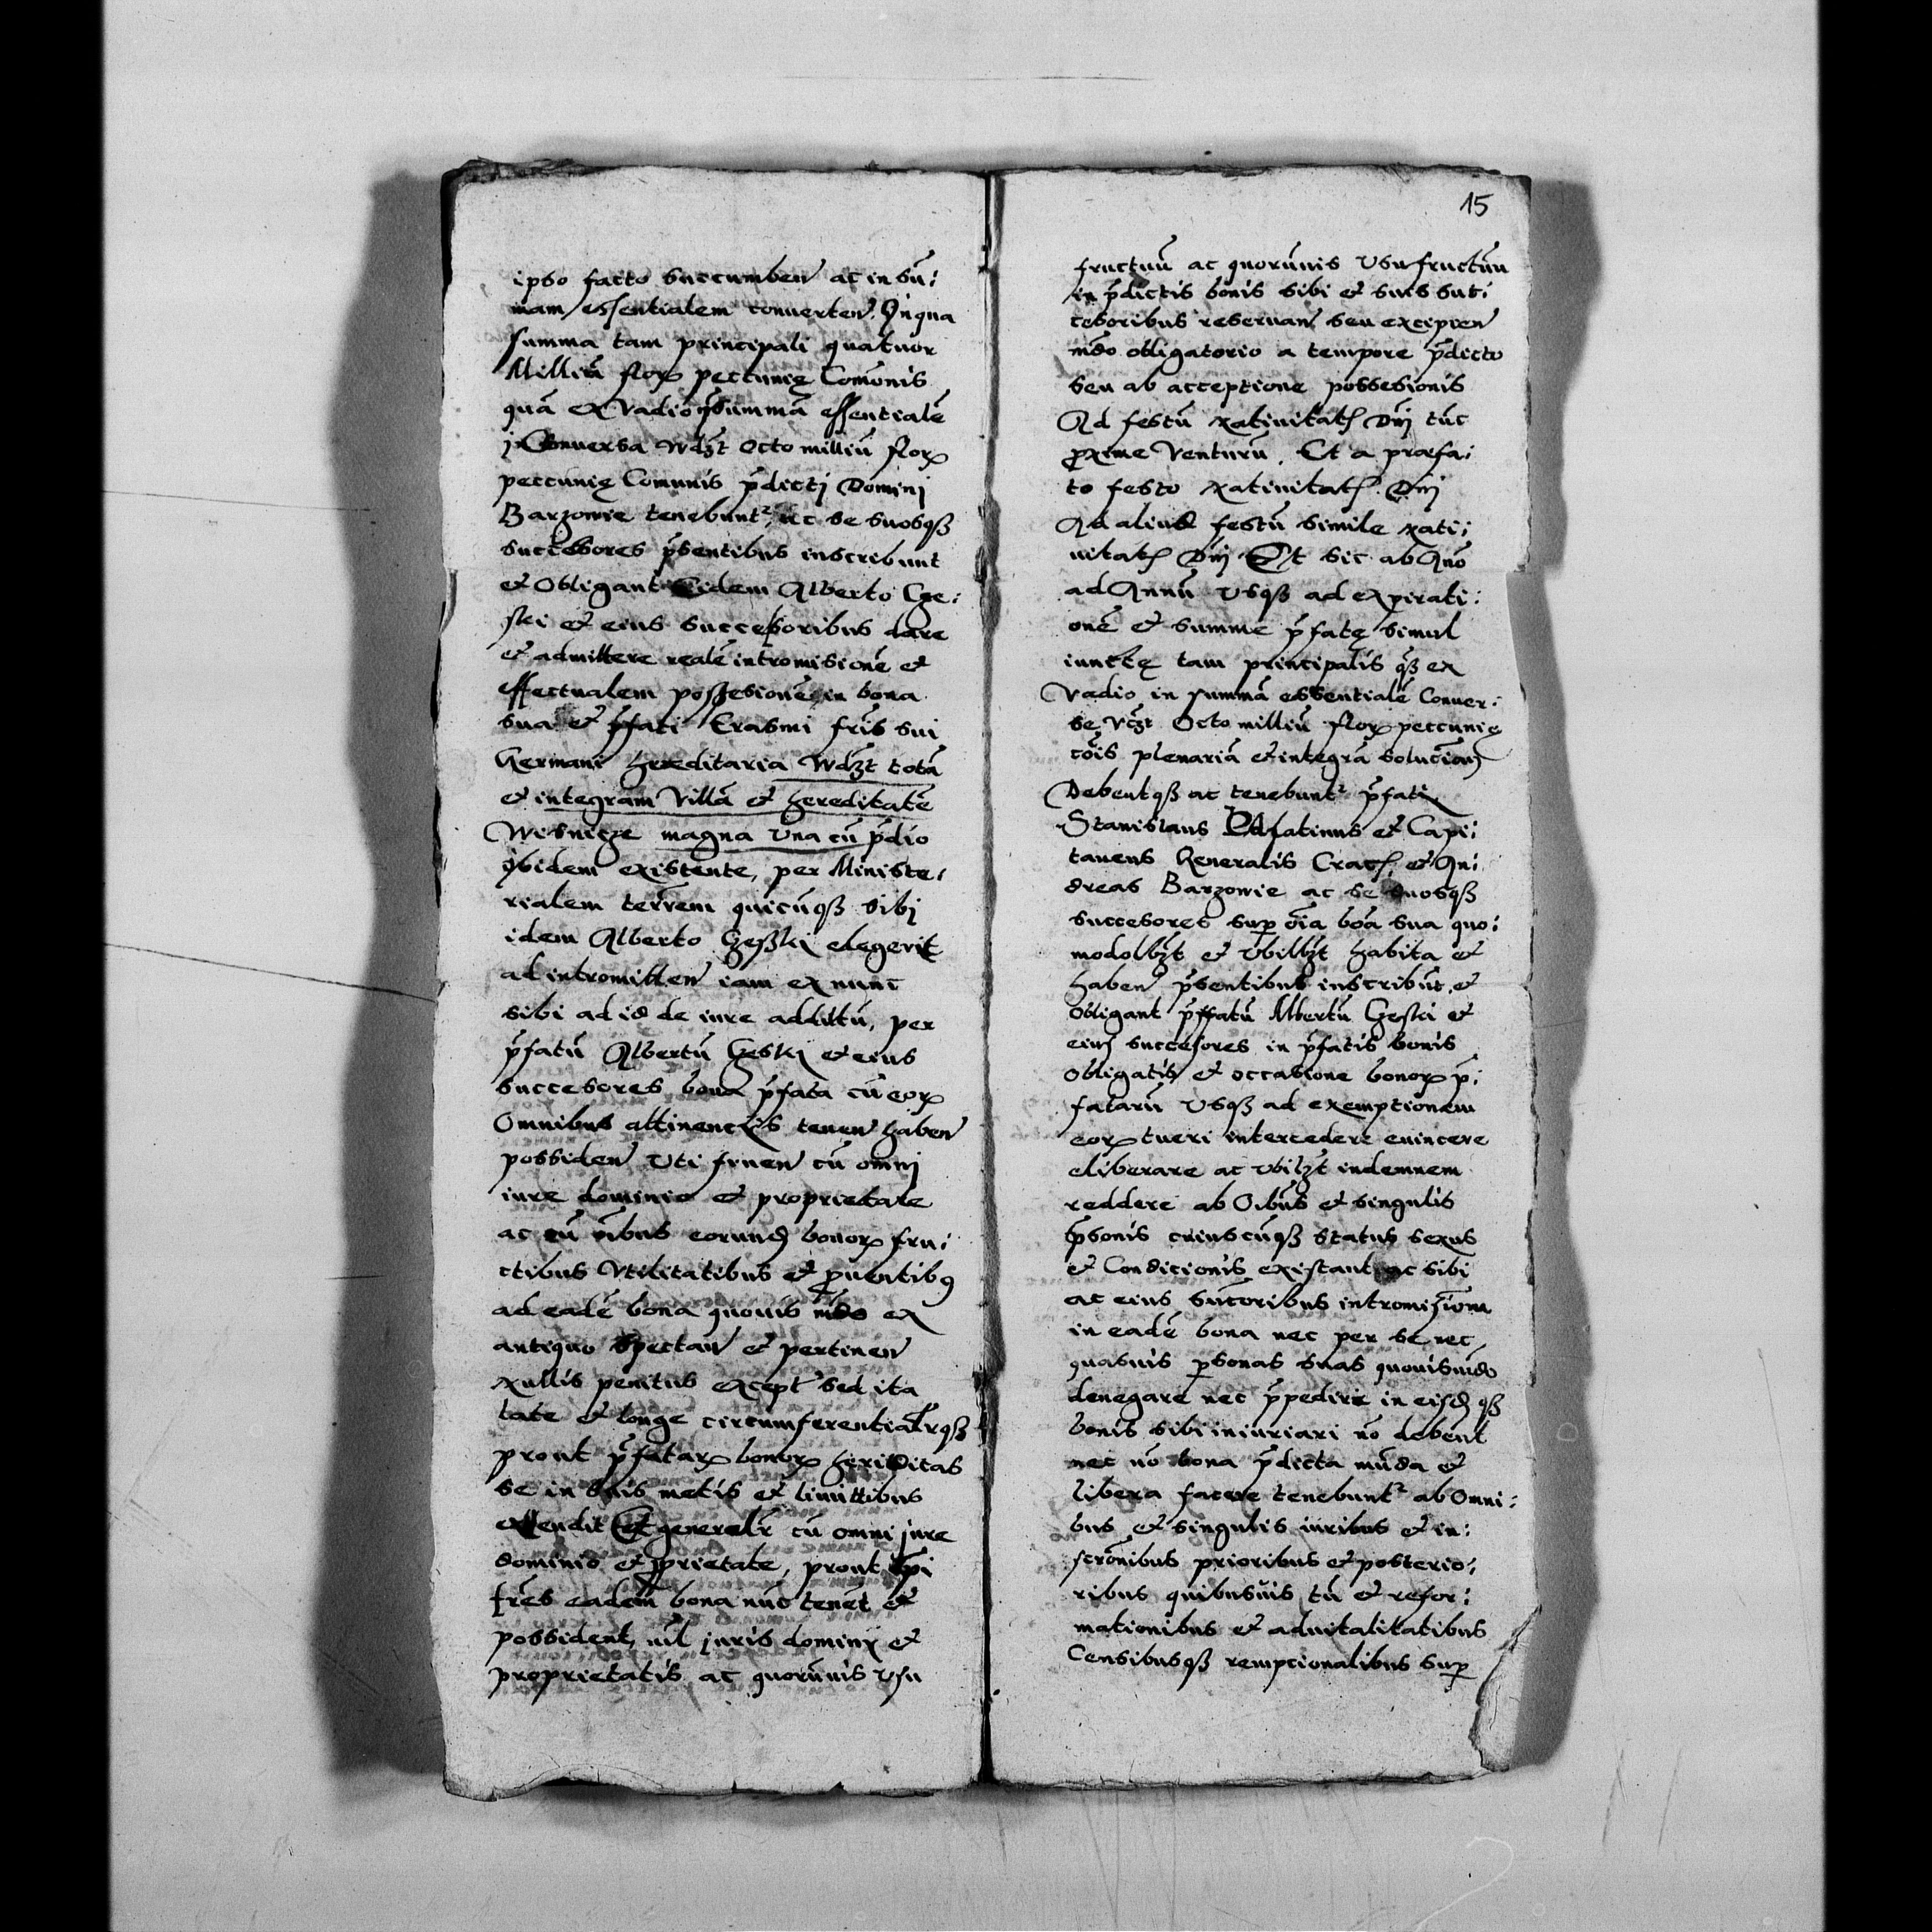 ipso facto succumben̄ ac in sū:
mam essentialem conuerten̄. In qua
summa tam principali quatuor
Milliū florꝝ peccunię Comonis
quā ex vadio ī summā essentialē
Conuersa vdzt octo milliū florꝝ
peccunię Comunis p̄dictj Dominj
Barzowie tenebuntʳ, ac se suosqꝫ
successores p̄sentibus inscribunt
et Obligant Eidem Alberto Cze:
ski et eius successoribus dare
et admittere realē intromisionē et
effectualem possesionē in bona
sua et p̄fati Erasmi fr̄is sui
Germani hereditaria Vdzt totā
et integram Villā et hereditatē
Wisnicze magna vna cū p̄dio
ibidem existente, per Ministe:
rialem terr̄em quicūqꝫ sibj
idem Alberto Czeski elegerit
ad intromitten̄ iam ex nunc
sibi ad id de iure additū, per
p̄fatū Albertū Czeskj et eius
succesores bona p̄fata cū eorꝝ
Omnibus attinencijs tenen̄ haben̄
possiden̄ vti fruen̄ cū omnj
iure dominio et proprietate
ac cū oı̄bus eorundē bonorꝝ fru:
ctibus Vtilitatibus et ꝓuentibꝯ
ad eadē bona quouis mō ex
antiquo spectan̄ et pertinen̄
Nullis penitus except' sed ita
late et longe circumferentialrqꝫ
prout p̄fatarꝝ bonorꝝ hereditas
se in suis metis et limittibus
extendit Et generalr̄ cū omni jure
dominio et ꝓprietate, prout ip̄i
fr̄es eadem bona nūc tenēt et
possident, nil juris dominij et
proprietatis ac quorūuis vsu
15
fructuū ac quorūuis Vsufructuū
in p̄dictis bonis sibi et suis suc:
cesoribus reseruan̄ seu excipien̄
mō obligatorio a tempore p̄dicto
seu ab acceptione possesionis
Ad festū Natiuitatꝭ Dnj tūc
ꝓxime Venturū. Et a praefa:
to festo Natiuitatꝭ Dnj
Ad aliud festū simile Nati:
uitatꝭ Dnj Et sic ab Añno
ad Annū Vsqꝫ ad expirati:
onē et summe p̄fatę simul
iunctę tam principalis qꝫ ex
Vadio in summā essentialē Conuer:
se vczt Octo milliū florꝝ peccunię
cōis plenariā et integrā soluciōnē
Debentqꝫ ac tenebuntʳ p̄fati
Stanislaus Palatinus et Capi:
taneus Generalis Cracꝭ et An:
dreas Barzowie ac se suosqꝫ
succesores suꝑ oı̄a boā sua quo:
modolbzt et Vbilbzt habita et
haben̄ p̄sentibus inscribūt, et
Obligant p̄fatū Albertū Czeski et
eius succesores in p̄fatis bonis
Obligatis et occasione bonorꝝ p̄:
fatarū Vsqꝫ ad exemptionem
eorꝝ tueri intercedere euincere
eliberare ac vbilzt indemnem
reddere ab Oı̄bus et singulis
ꝑsonis cuiuscūqꝫ status sexus
et Condicionis existant ac sibi
ac eius sūctoribus intromisīonem
in eadē bona nec per se nec
quasuis ꝑsonas suas quouismō
denegare nec p̄pedire in eisdē qꝫ
bonis sibi iniuriari nō debent
nec nō bona p̄dicta mūda et
libera facere tenebuntʳ ab Omni:
bus et singulis iuribus et in:
scrōnibus prioribus et posterio:
ribus quibusuis tū et refor:
mationibus et aduitalitatibus
Censibusqꝫ rempcionalibus suꝑ